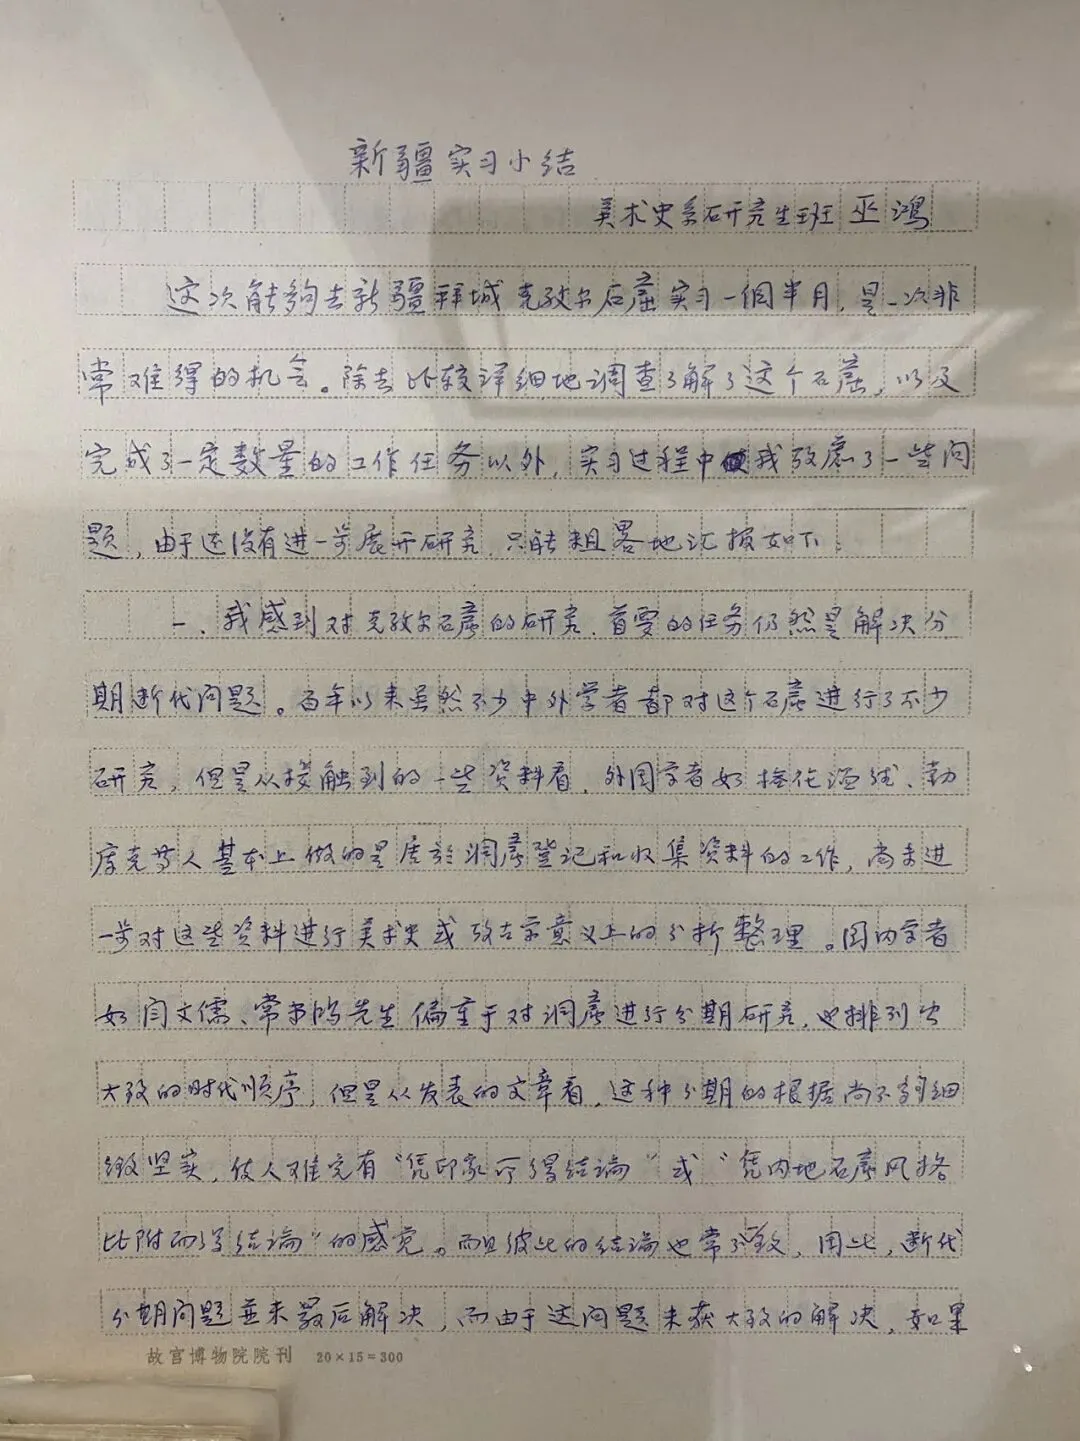 新疆实习小结
美术史系研究生班 巫鸿
这次能夠去新疆拜城克孜尔石窟实习一個半月，是一次非
常难得的机会。除去比较详细地调查了解了这个石窟，以及
完成了一定数量的工作任务以外，实习过程中我考虑了一些问
题，由于还没有进一步展开研究，只能粗略地汇报如下：
一、我感到对克孜尔石窟的研究，首要的任务仍然是解决分
期断代问题。百年以来虽然不少中外学者都对这个石窟进行了不少
研究，但是从接触到的一些资料看，外国学者如格伦威德、勒
库克等人基本上做的是属於洞窟登记和收集资料的工作，尚未进
一步对这些资料进行美术史或考古学意义上的分析整理。国内学者
如阎文儒、常书鸿先生偏重于对洞窟进行分期研究，也排列出
大致的时代顺序，但是从发表的文章看，这种分期的根据尚不夠细
緻坚实，使人难免有“凭印象而得结论”或“凭内地石窟风格
比附而得结论”的感觉。而且彼此的结论也常不一致，因此，断代
分期问题並未最后解决，而由于这问题未获大致的解决，如果
故宫博物院院刊 20×15=300